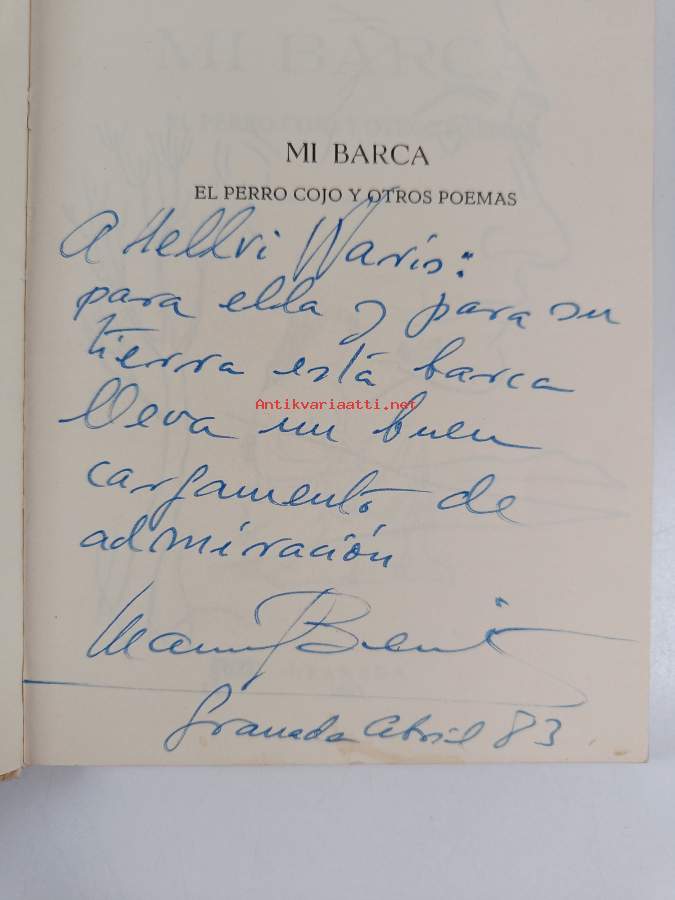 MI BARCA
EL PERRO COJO Y OTROS POEMAS
A Hellvi Waris:
para ella y para su
tierra está barca
lleva un buen
Antikvariaatti.net
cargamento de
admiración
Granada Abril 83